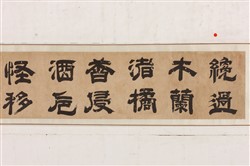 繞過
木蘭
渚橘
香浸
酒卮
怪移